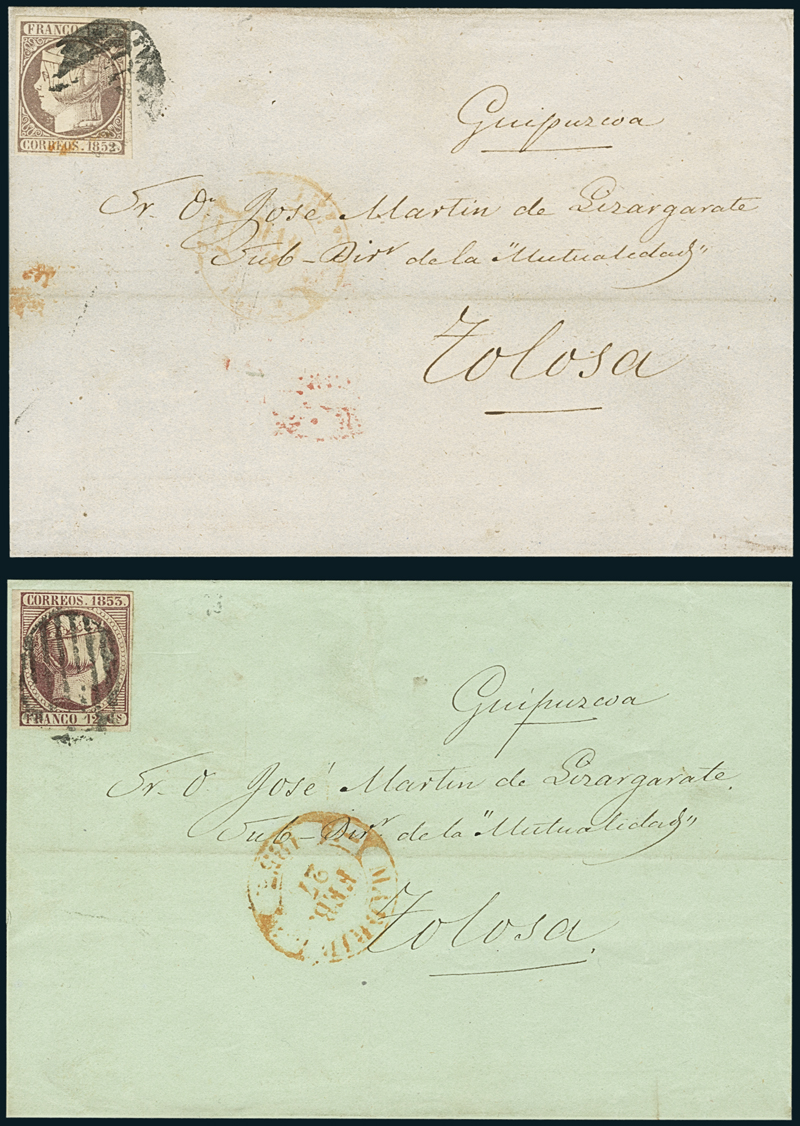 FRANCO
CORREOS. 1852
Guipuzcoa
Sr. Dn José Martin de Lizargarate
Sub-Dirr de la "Mutualidad"
Tolosa
CORREOS. 1853.
FRANCO 12 Cs
Guipuzcoa
Sr. D. José Martin de Lizargarate.
Sub-Dirr de la "Mutualidad"
MADRID
27
FEB
185
Tolosa.